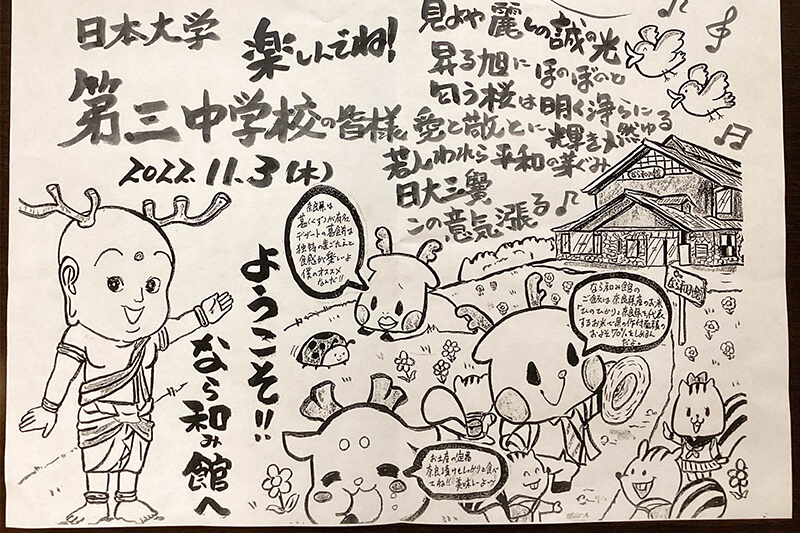 日本大学
楽しんでね!
第三中学校の皆様
2022.11.3(木)
見よや麗しの誠の光
昇る旭にほのぼのと
匂う桜は明く浄らに
愛と敬とに輝き燃ゆる
若しわれら平和の芽ぐみ
日大三
この意気漲る
ようこそ!!
なら和み館へ
奈良県は
葛(くず)が有名
デザートの葛餅は
独特の歯ごたえと
食感が楽しいよ
僕のオススメ
なんだ!!
なら和み館の
ご飯は奈良県産のお米
「ひのひかり」奈良県を代表
するお米で県の作付面積の
およそ70%をしめるん
だよ〜
なら和み館
お土産の定番
奈良漬けもしっかり食べ
てね!!美味しいよ〜